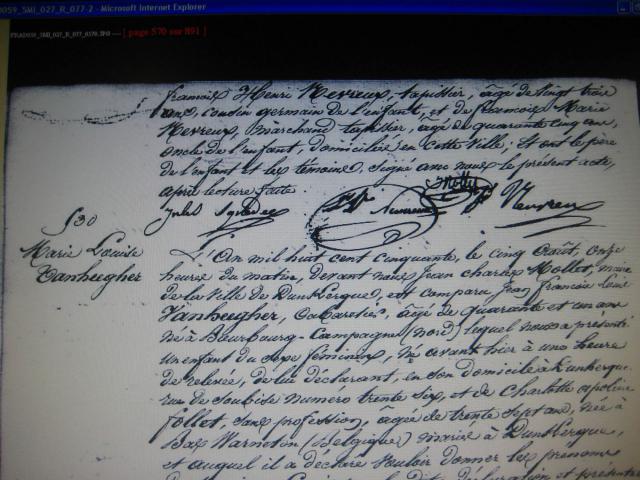 0059_SMI_027_R_077-2 - Microsoft Internet Explorer
FRAD059_SMI_027_R_077_0570.JPG --- [ page 570 sur 891 ]
francois Henri Nevreux, tapissier, âgé de vingt trois
ans, cousin germain de l'enfant, et de francois Marie
Nevreux, marchand tapissier, âgé de quarante cinq ans,
oncle de l'enfant, domiciliés en cette ville; et ont le père
de l'enfant et les témoins, signé avec nous le présent acte,
après lecture faite
Jules
Mollet
530
Marie Louise
Vanheegher
L'An mil huit cent cinquante, le cinq Août, onze
heures du matin, devant nous Jean Charles Mollet, maire
de la Ville de Dunkerque, est comparu Jean francois Louis
Vanheegher, cabaretier, âgé de quarante et un ans
né à Bourbourg-Campagne (Nord) lequel nous a présenté
un enfant du sexe féminin, né avant hier à une heure
de relevée, de lui déclarant, en son domicile à Dunkerque
rue de Soubise numéro trente six, et de Charlotte apoline
follet, sans profession, âgée de trente sept ans, née à
Bas Warneton (Belgique) mariés à Dunkerque,
et auquel il a déclaré vouloir donner les prénoms
déclaration et présenta